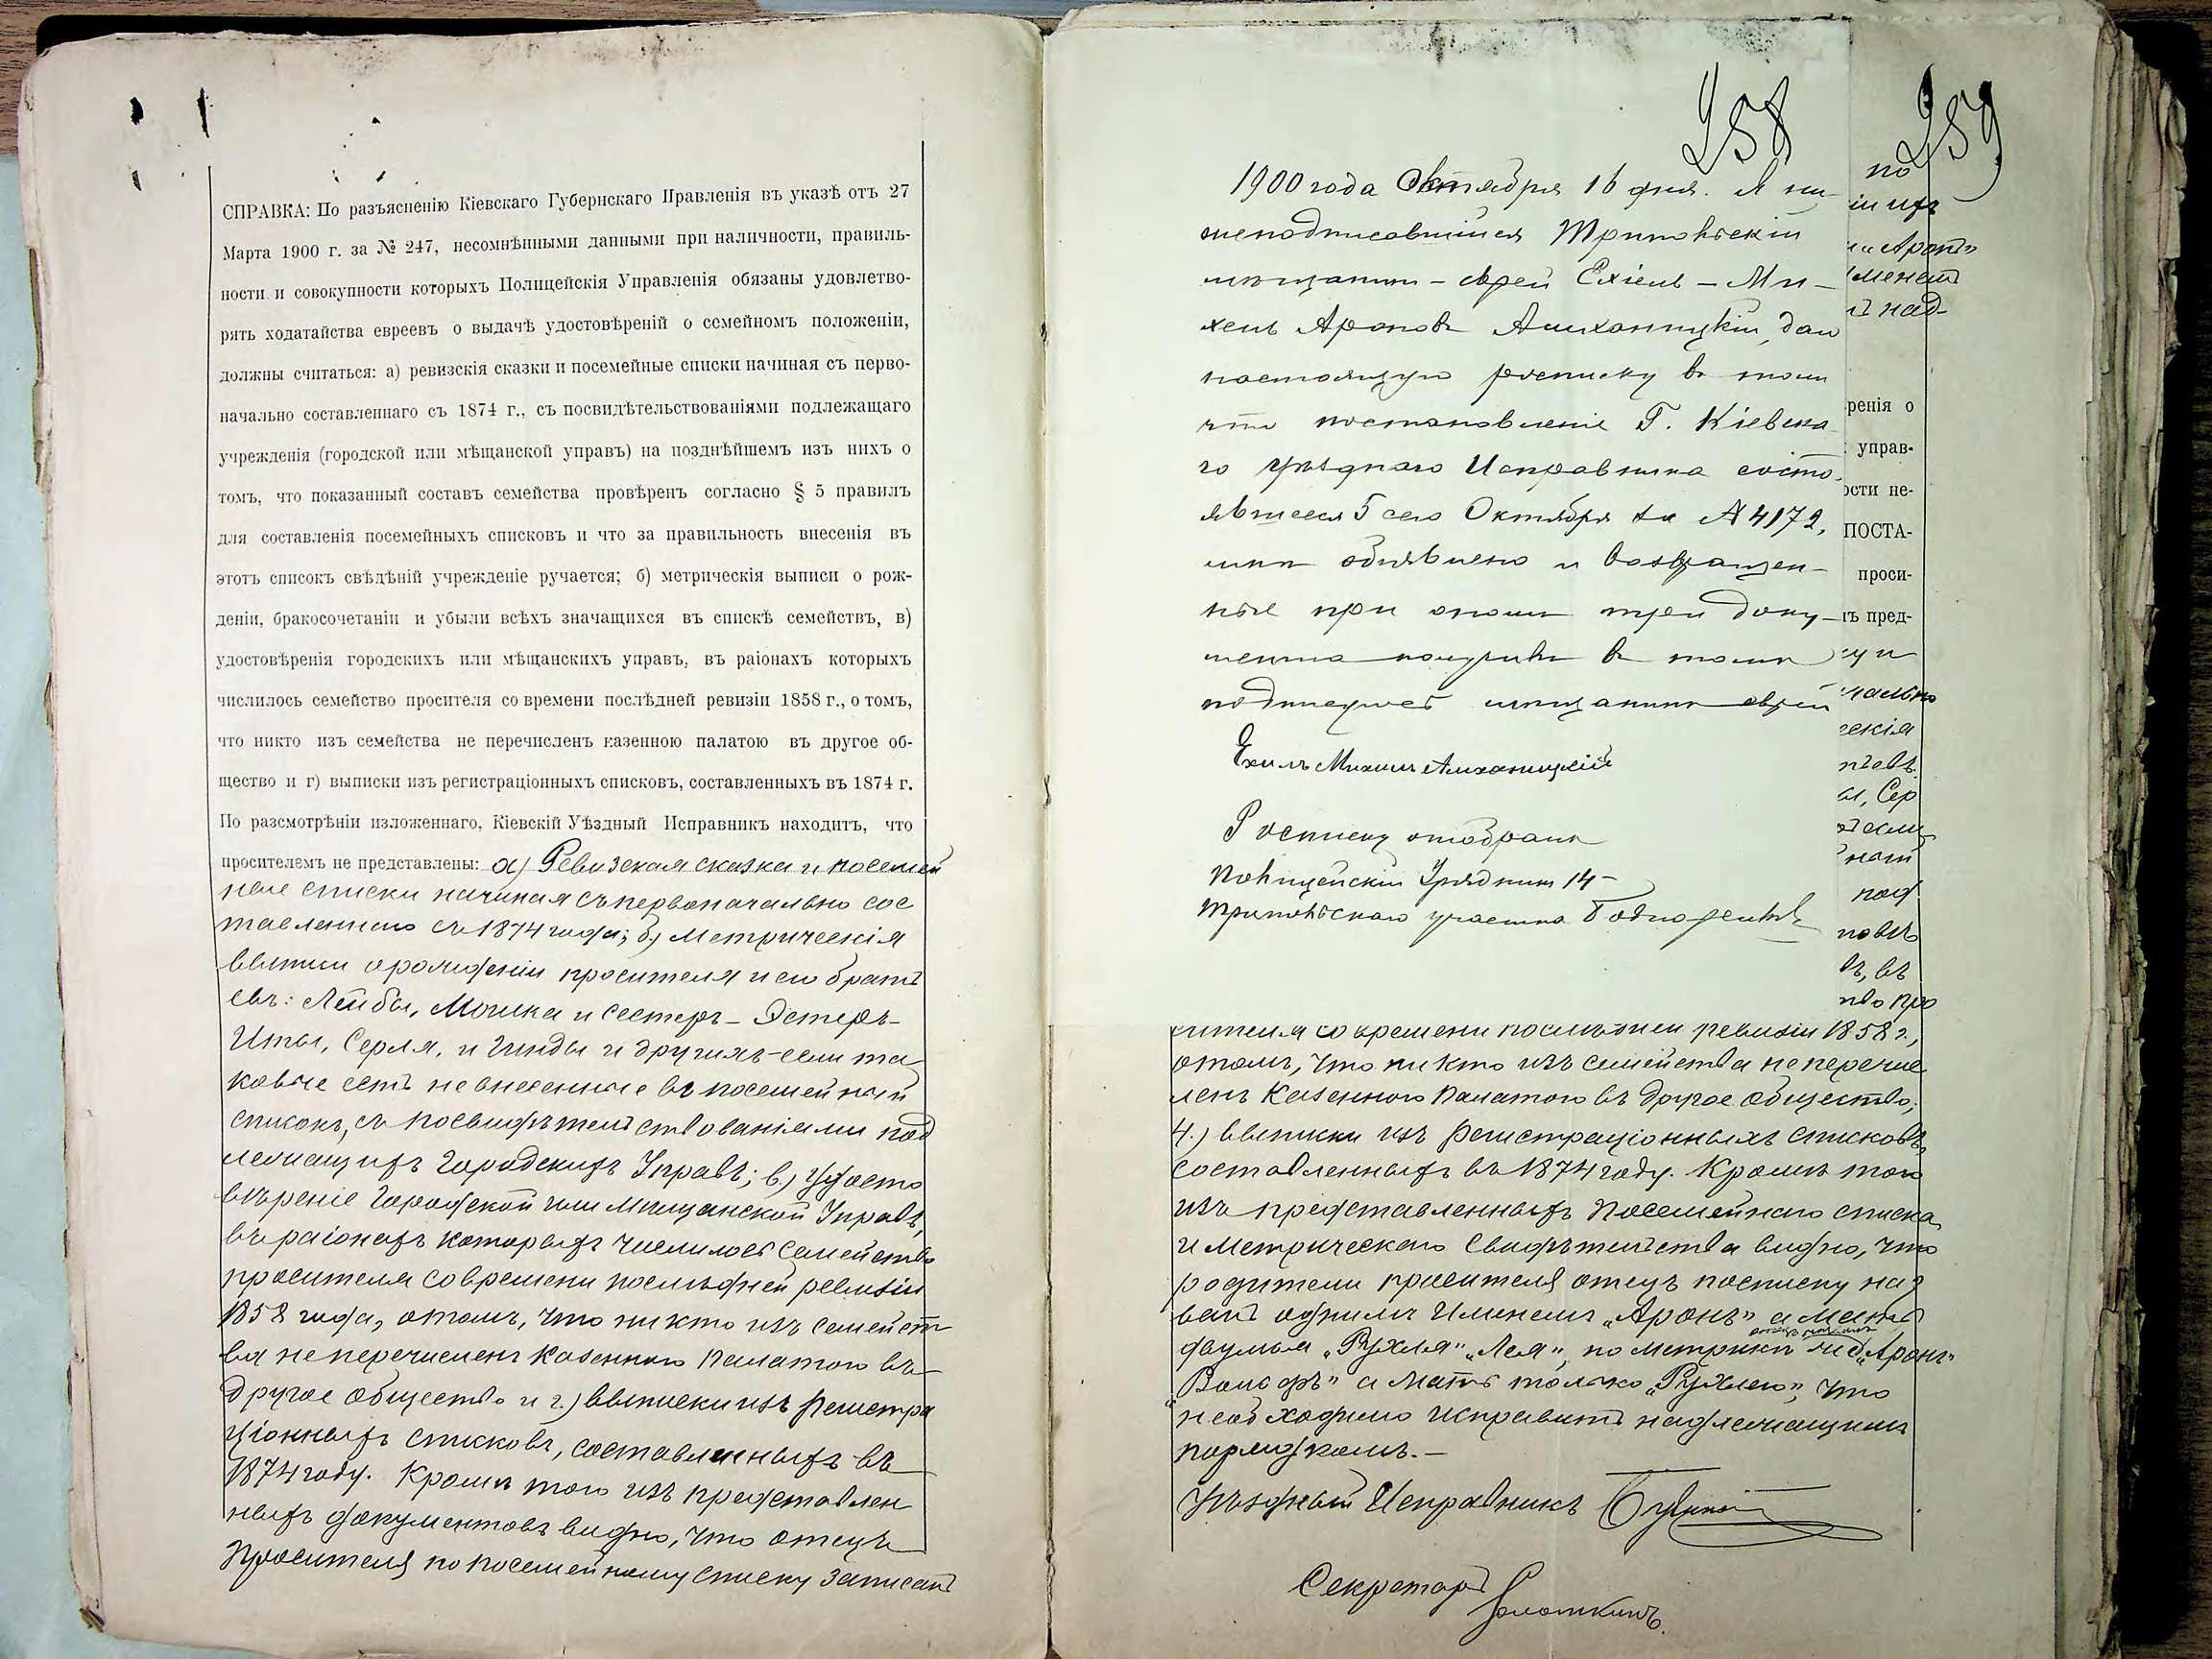 СПРАВКА: По разъясненію Кіевскаго Губернскаго Правленія въ указѣ отъ 27
Марта 1900 г. за № 247, несомнѣнными данными при наличности, правиль-
ности и совокупности которыхъ Полицейскія Управленія обязаны удовлетво-
рять ходатайства евреевъ о выдачѣ удостовѣреній о семейномъ положеніи,
должны считаться: а) ревизскія сказки и посемейные списки начиная съ перво-
начально составленнаго съ 1874 г., съ посвидѣтельствованіями подлежащаго
учрежденія (городской или мѣщанской управъ) на позднѣйшемъ изъ нихъ о
томъ, что показанный составъ семейства провѣренъ согласно § 5 правилъ
для составленія посемейныхъ списковъ и что за правильность внесенія въ
этотъ списокъ свѣдѣній учрежденіе ручается; б) метрическія выписи о рож-
деніи, бракосочетаніи и убыли всѣхъ значащихся въ спискѣ семействъ, в)
удостовѣренія городскихъ или мѣщанскихъ управъ, въ раіонахъ которыхъ
числилось семейство просителя со времени послѣдней ревизіи 1858 г., о томъ,
что никто изъ семейства не перечисленъ казенною палатою въ другое об-
щество и г) выписки изъ регистраціонныхъ списковъ, составленныхъ въ 1874 г.
По разсмотрѣніи изложеннаго, Кіевскій Уѣздный Исправникъ находитъ, что
просителемъ не представлены: а) Ревизская сказка и посемей
ные списки начиная съ первоначально сос
тавленнаго съ 1874 года; б) Метрическія
выписи о рожденіи просителя и его брать
евъ: Лейбы, Мошка и сестеръ - Эстеръ-
Иты, Серля, и Гинды и другихъ-если та
ковые есть не внесенные въ посемейный
списокъ, съ посвидѣтельствованіями под
лежащихъ Городскихъ Управъ; в.) Удосто
вѣреніе Городской или Мѣщанской Управъ,
въ раіонахъ которыхъ числилось семейство
просителя со времени послѣдней ревизіи
1858 года, о томъ, что никто изъ семейст
ва не перечисленъ казенною палатою въ
другое общество и г.) выписки изъ регистра
ціонныхъ списковъ, составленныхъ въ
1874 году. Кромѣ того изъ представлен
ныхъ документовъ видно, что отецъ
просителя по посемейному списку записанъ
258
1900 года Октября 16 дня. Я ни-
жеподписавшійся Трипольскій
мѣщанинъ - еврей Ехіель - Ми-
хель Ароновъ Алиханицкій, далъ
настоящую росписку въ томъ
что постановленіе Г. Кіевска
го Уѣзднаго Исправника состо-
явшееся 5 сего Октября за № 4172,
мнѣ объявлено и возвращен-
ные при ономъ три доку-
мента получилъ въ томъ
подписуюсь мѣщанинъ еврей
Ехилъ Михилъ Алиханицкій
Росписку отобралъ
Полицейскій Урядникъ 14-
Трипольскаго участка
259
по
іи ихъ
"Аронъ"
имен
над
ренія о
управ-
ости не-
ПОСТА-
проси-
ъ пред-
у и
чально
ескія
тьевъ
ы, Сер
ный
под
повъ
въ
во про
сителя со времени послѣдней ревизіи 1858 г.,
о томъ, что никто изъ семейства не перечис
ленъ Казенною Палатою въ другое общество;
4.) выписки изъ регистраціонныхъ списковъ,
составленныхъ въ 1874 году. Кромѣ того
изъ представленныхъ Посемейнаго списка
и Метрическаго Свидѣтельства видно, что
родители просителя отецъ по списку наз
ванъ однимъ Именемъ „Аронъ" а мать
двумья „Рухля" „Лея", по метрикѣ „Аронъ"
„Вольфъ" а мать только „Рухлею", что
необходимо исправить надлежащимъ
порядкомъ.-
Уѣздный Исправникъ
Секретарь